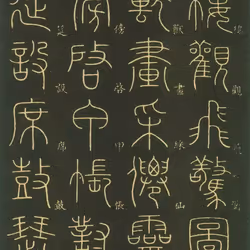 樓觀飛驚圖
獸畫彩僊靈
傍啓甲帳對
筵設席鼓瑟